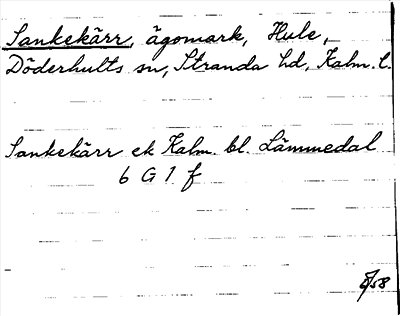 Sankekärr, ägomark, Hule,
Döderhults sn, Stranda hd, Kalm. l.
Sankekärr ek Kalm. bl. Lämmedal
6 G 1 f